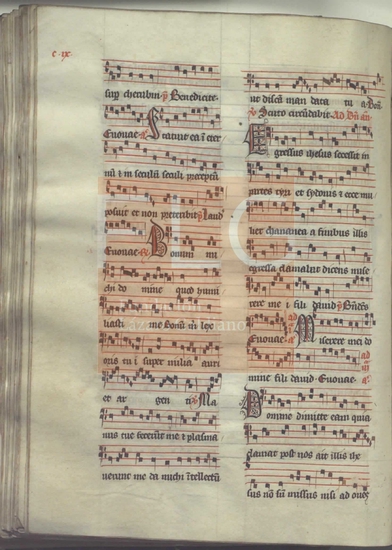 c. ix.
sup cherubin. p̄ Benedicite.
Euouae. a̅ Statuit ea ī eter
nū ⁊ in seculū seculi preceptū
posuit et non preteribit. p̄ Laud
Euouae. Bonum mi
chi do mine quod humi
liasti me bonū m̄ lex
oris tu i super milia auri
et ar gen ti. Ma
nus tue fecerūt me ⁊ plasma
uerunt me da michi ītellectū
ut discā man data tu a. Bon̄.
Scuto circūdabit. Ad Bn̄ an̄
Egressus ihesus secessit in
partes tyri et sydonis ⁊ ecce mu
lier chananea a finibus illis
egressa clamabat dicens mise
rere me i fili dauid. p̄ Bn̄dcs
Euouae. Miserere mei do
mine fili dauid. Euouae.
Domine dimitte eam quia
clamat post nos ait illis ihe
sus nō sū missus nisi ad oues